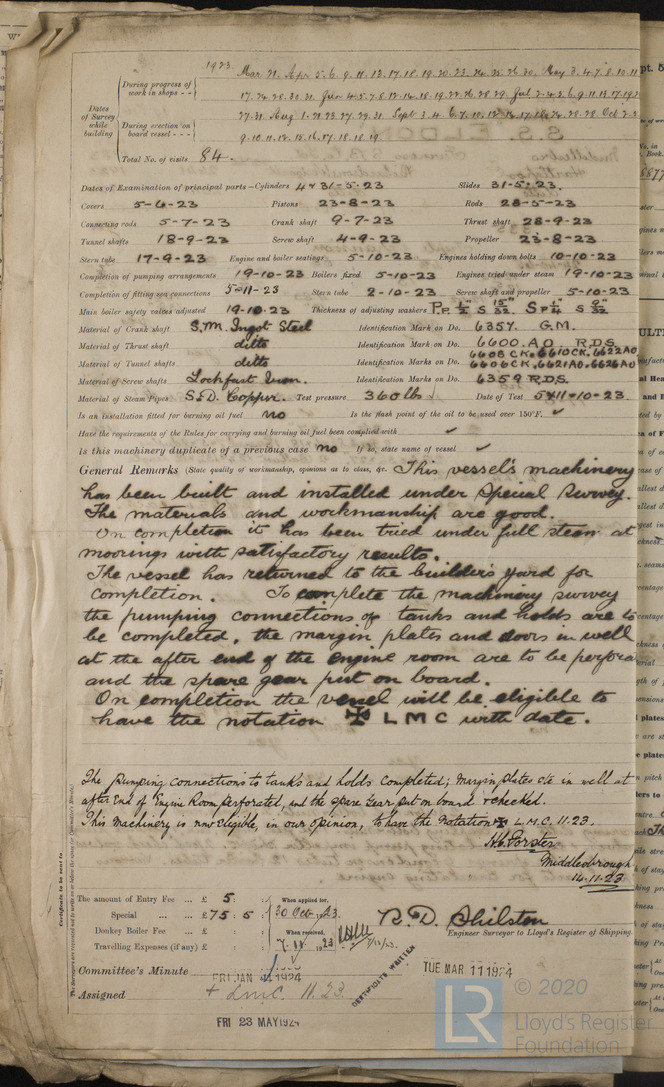 1923
Mar. 21. Apr 5. 6. 9. 11. 13. 17. 18. 19. 20. 23. 24. 25. 26. 30. May 3. 4. 7. 8. 10. 11
During progress of
work in shops - -
17. 24. 28. 30. 31. June 4. 5. 7. 8. 12. 14. 18. 19. 22. 26. 28. 29. Jul 2. 4. 2. 6. 9. 11. 13. 17. 19.
Dates
of Survey
while
building
During erection on
board vessel - - -
27. 31. Aug 1. 21. 23. 27. 31. Sept 3. 4. 6. 7. 10. 12. 14. 17. 18. 24. 25. 28. Oct 2. 3
9. 10. 11. 12. 15. 16. 17. 18. 18. 19.
Total No. of visits 84.
Dates of Examination of principal parts—Cylinders 4 & 31-5-23 Slides 31-5-23.
Covers 5-6-23 Pistons 23-8-23 Rods 28-5-23
Connecting rods 5-7-23 Crank shaft 9-7-23 Thrust shaft 28-9-23
Tunnel shafts 18-9-23 Screw shaft 4-9-23 Propeller 23-8-23
Stern tube 17-9-23 Engine and boiler seatings 5-10-23 Engines holding down bolts 10-10-23
Completion of pumping arrangements 19-10-23 Boilers fixed 5-10-23 Engines tried under steam 19-10-23
Completion of fitting sea connections 5-11-23 Stern tube 2-10-23 Screw shaft and propeller 5-10-23
Main boiler safety valves adjusted 19-10-23 Thickness of adjusting washers P.P. 1/2" S 15/32" S P 1/4" S 9/32"
Material of Crank shaft S.M. Ingot Steel Identification Mark on Do. 6357. G.M.
Material of Thrust shaft ditto Identification Mark on Do. 6600. A.O R.D.S.
6608 CK. 6610 CK. 6622 AO
Material of Tunnel shafts ditto Identification Marks on Do. 6606 CK. 6621 AO. 6626 AO
Material of Screw shafts Lockfast Iron. Identification Marks on Do. 6359 R.D.S.
Material of Steam Pipes S.D. Copper. Test pressure 360 lbs Date of Test 5 & 11-10-23.
Is an installation fitted for burning oil fuel no Is the flash point of the oil to be used over 150°F. ✓
Have the requirements of the Rules for carrying and burning oil fuel been complied with ✓
Is this machinery duplicate of a previous case no If so, state name of vessel ✓
General Remarks (State quality of workmanship, opinions as to class, &c. This vessel's machinery
has been built and installed under Special Survey.
The materials and workmanship are good.
On completion it has been tried under full steam at
moorings with satisfactory results.
The vessel has returned to the builder's yard for
completion. To complete the machinery survey
the pumping connections of tanks and holds are to
be completed, the margin plates and doors in well
at the after end of the engine room are to be perfora
and the spare gear put on board.
On completion the vessel will be eligible to
have the notation ✠ L M C with date.
The pumping connections to tanks and holds completed; margin plates etc in well at
after End of Engine Room perforated, and the spare Gear put on board & checked.
This machinery is now Eligible, in our opinion, to have the Notation ✠ L.M.C. 11.23.
H.C. Forster
Middlesbrough
14.11.23
Certificate to be sent to
The amount of Entry Fee ... £ 5 : : When applied for,
Special ... £ 75 : 5 : 30 Oct. 1923.
Donkey Boiler Fee ... £ : : When received,
Travelling Expenses (if any) £ : :
R.D. Shilston
Engineer Surveyor to Lloyd's Register of Shipping.
Committee's Minute
FRI. JAN 1924
TUE. MAR 11 1924
Assigned + LMC 11.23.
CERTIFICATE WRITTEN
FRI 23 MAY 1924
LR
© 2020
Lloyd's Register
Foundation